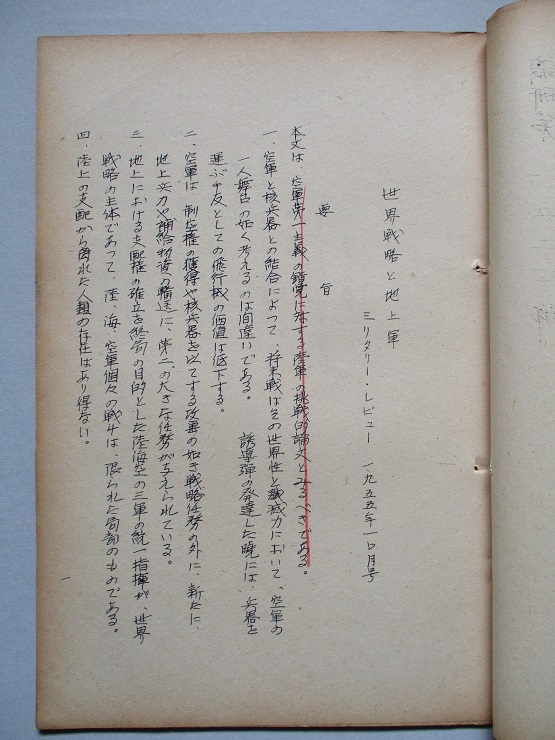 世界戦略と地上軍
ミリタリー・レビュー 一九五五年一〇月号
要旨
本文は 空軍第一主義の錯覚に対する陸軍の挑戦的論文とみるべきである。
一、空軍と核兵器との結合によって、将来戦はその世界性と殲滅力において、空軍の
一人舞台の如く考えるのは間違いである。 誘導弾の発達した暁には、兵器を
運ぶ手友としての飛行機の価値は低下する。
二、空軍は、制空権の獲得や核兵器を以てする攻撃の如き戦略任務の外に、新たに
地上兵力や補給物資の輸送に、第二の大きな任務が与えられている。
三、地上における支配権の確立を終局の目的とした陸海空の三軍の統一指揮が、世界
戦略の主体であつて、陸、海、空軍個々の戦斗は、限られた局部のものである。
四、陸上の支配から離れた人類の存在はあり得ない。
一